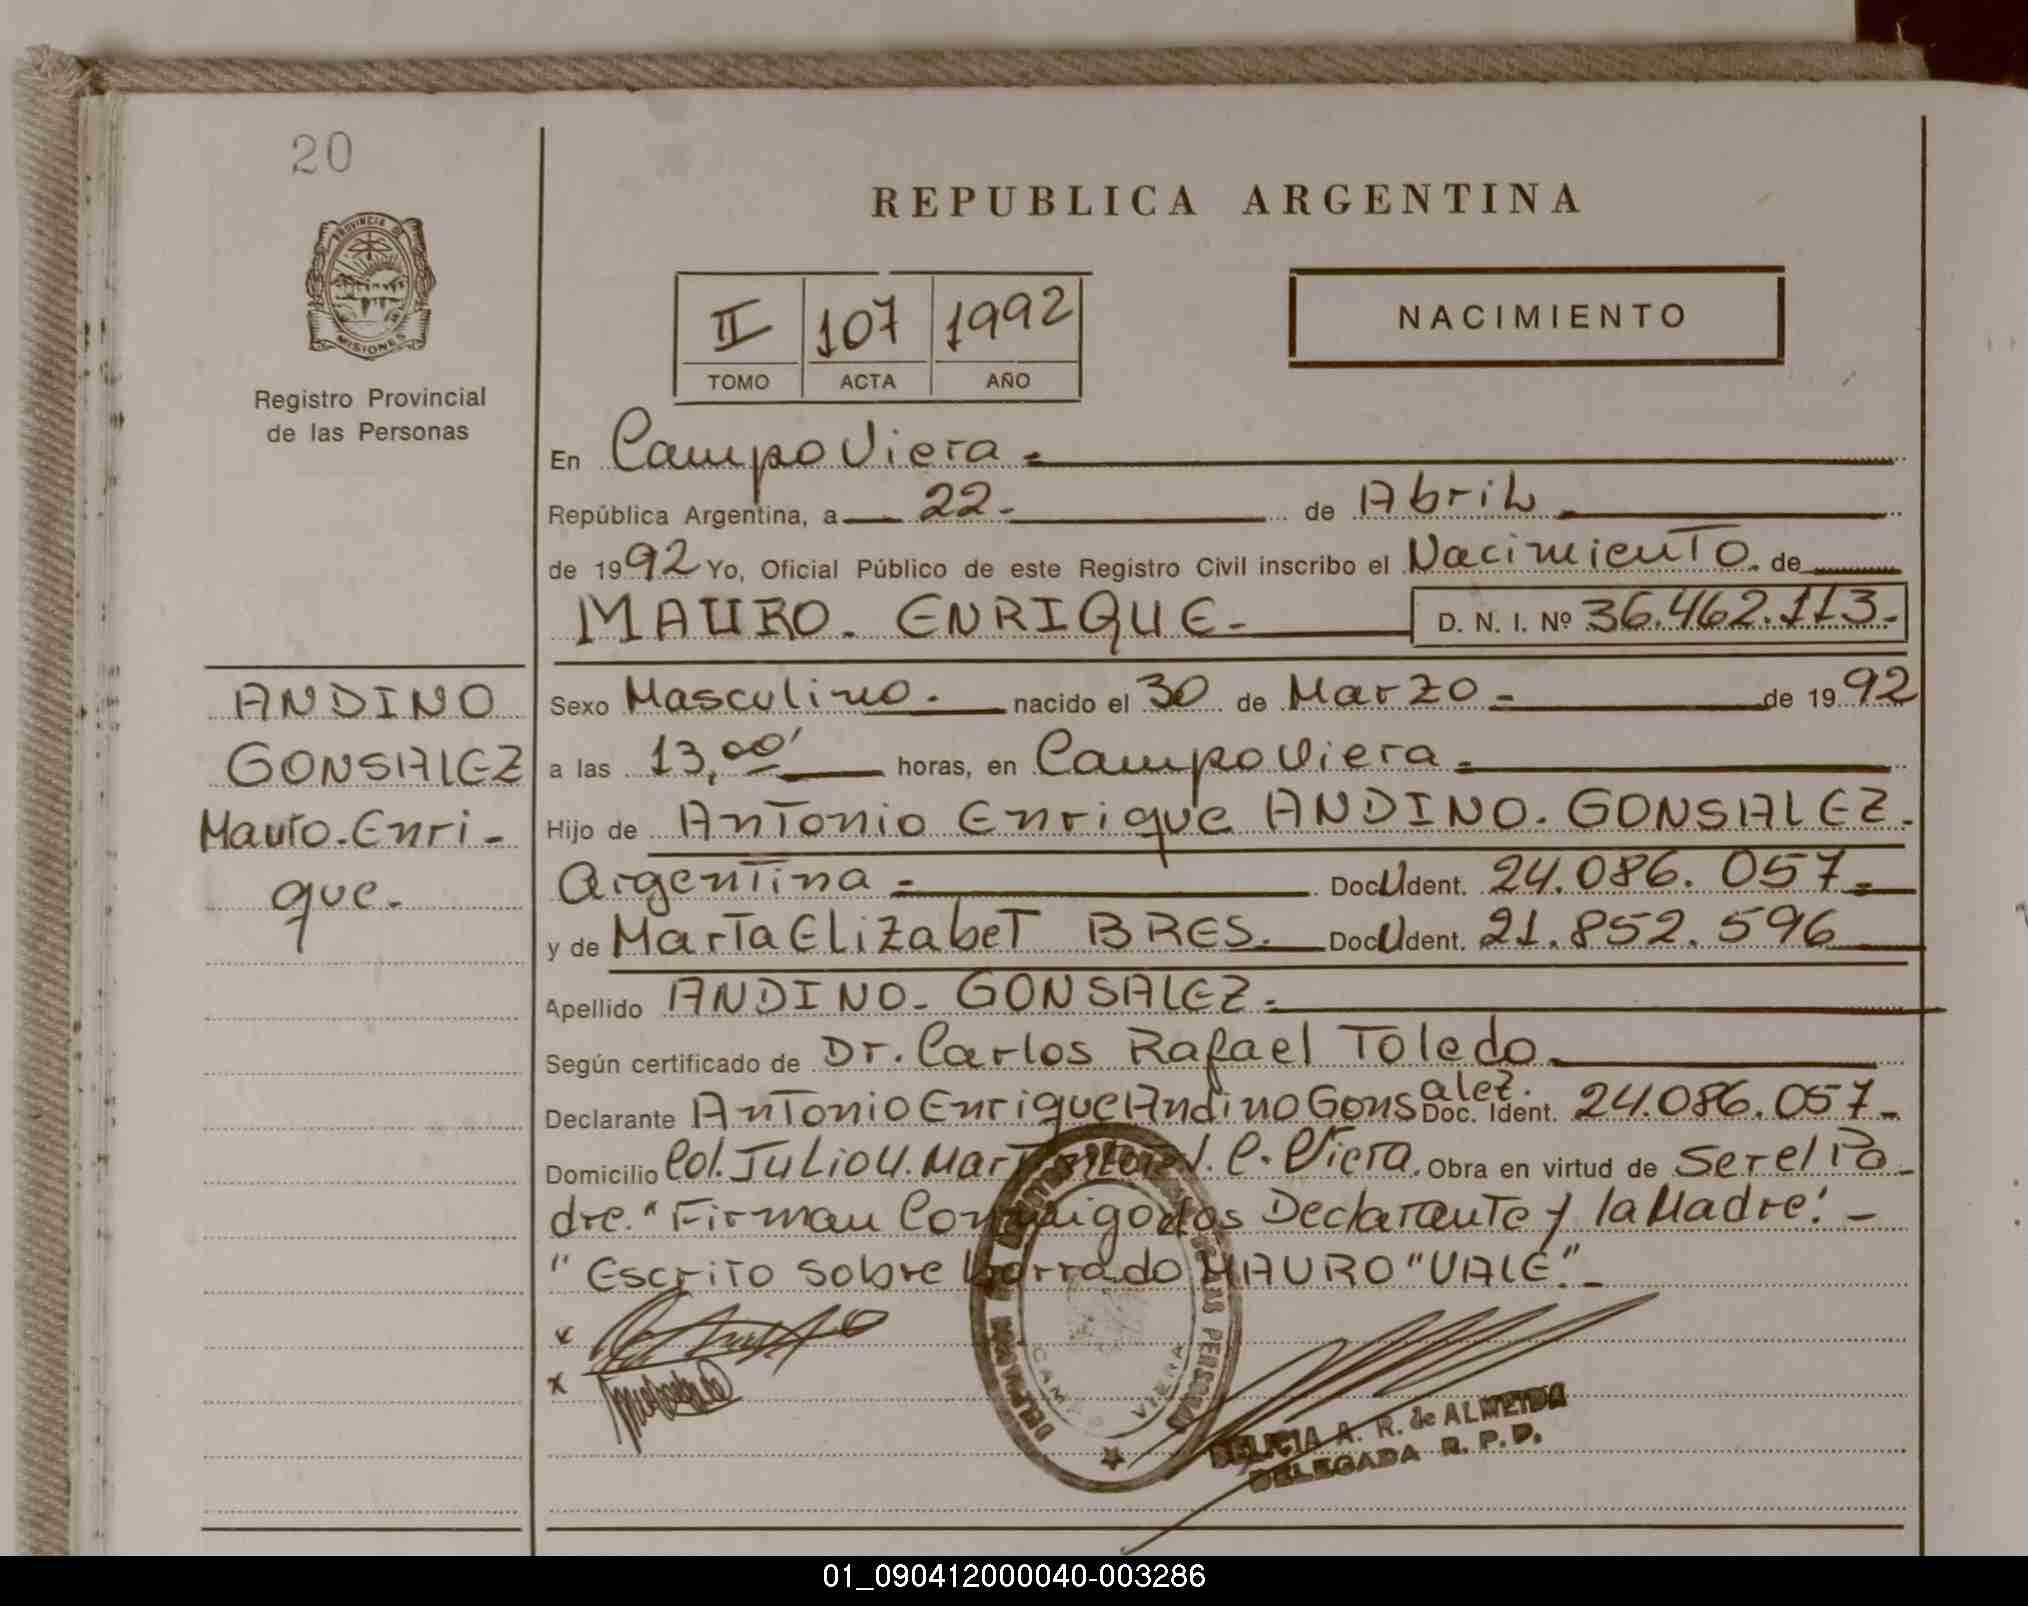 20
PROVINCIA DE
MISIONES
Registro Provincial
de las Personas
REPUBLICA ARGENTINA
II 107 1992
TOMO ACTA AÑO
NACIMIENTO
En Campo Viera.
República Argentina, a 22. de Abril
de 1992 Yo, Oficial Público de este Registro Civil inscribo el Nacimiento. de
MAURO. ENRIQUE. D. N. I. Nº 36.462.113.
ANDINO
GONSALEZ
Mauro. Enri-
que.
Sexo Masculino. nacido el 30 de Marzo de 1992
a las 13,00' horas, en Campo Viera.
Hijo de Antonio Enrique ANDINO. GONSALEZ.
Argentina Doc. U Ident. 24.086.057.
y de Marta Elizabet BRES. Doc. U Ident. 21.852.596
Apellido ANDINO. GONSALEZ.
Según certificado de Dr. Carlos Rafael Toledo
Declarante Antonio Enrique Andino Gonsalez. Doc. Ident. 24.086.057.
Domicilio Col. Julio U. C. Viera. Obra en virtud de Ser el Pa-
dre. "Firman Conmigo los Declarante y la Madre". -
"Escrito Sobre borrado MAURO "VALE".
x
x
DE LAS PERSONAS
CAMPO VIERA
DELICIA A. R. de ALMEIDA
DELEGADA R. P. P.
01_090412000040-003286